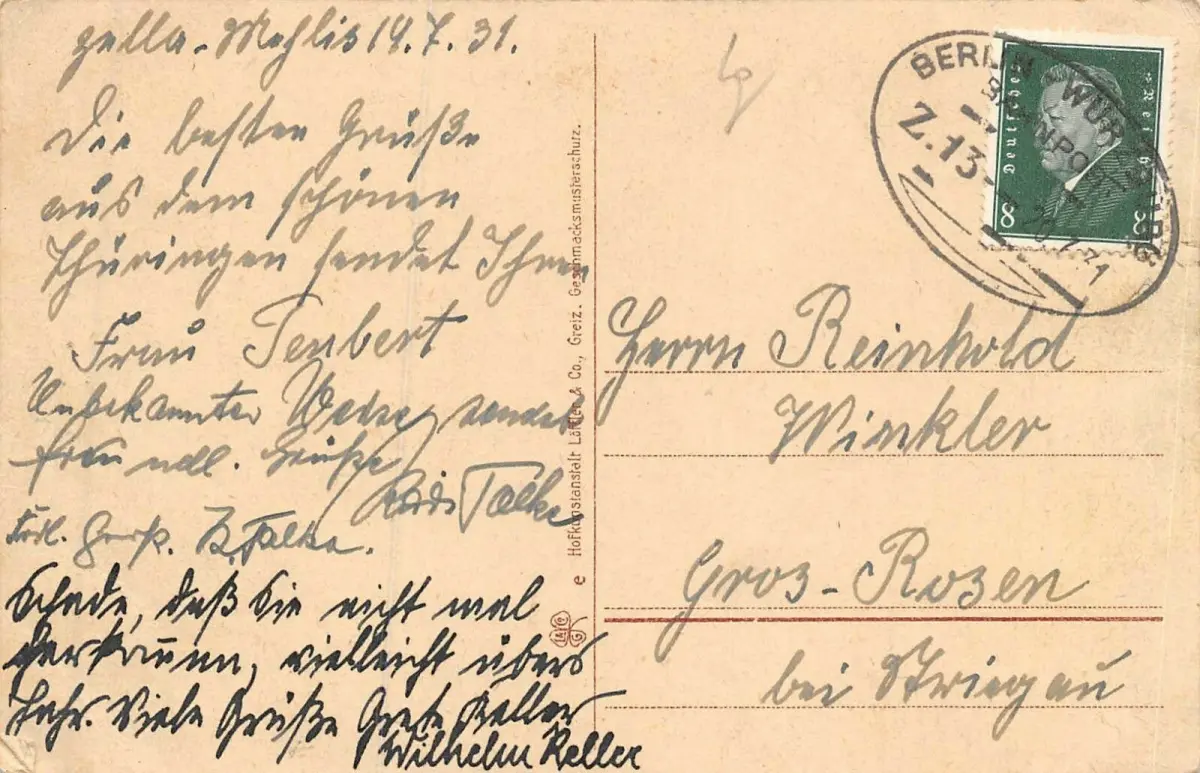 Zella-Mehlis 19.7.31.
Die besten Grüße
aus dem schönen
Thüringen sendet Ihnen
Frau
Unbekannter Weise sendet
freundl. Grüße
Frdl.
Schade, daß Sie nicht mal
herkamen, vielleicht übers
Jahr. Viele Grüße Grete Keller
Wilhelm Keller
e Hofkunstanstalt Löffler & Co., Greiz. Geschmacksmusterschutz.
BERLIN - WÜRZBURG
BAHNPOST
Z.13
20.7.31
Deutsches Reich
8 8
Herrn Reinhold
Winkler
Gros-Rosen
bei Striegau